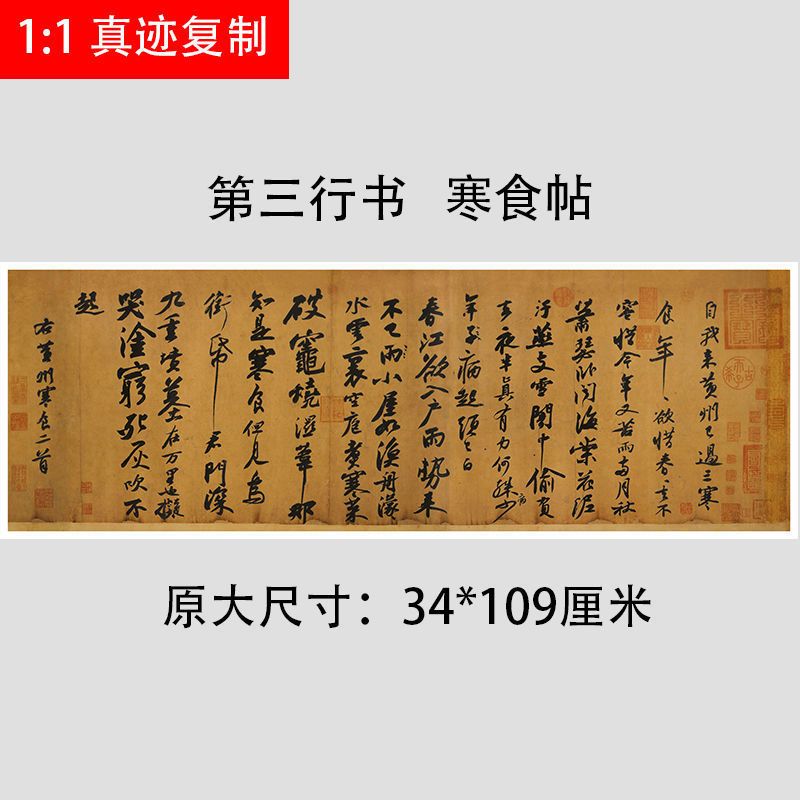 1:1 真迹复制
第三行书 寒食帖
自我来黄州已過三寒
食年〻欲惜春〻去不
容惜今年又苦雨兩月秋
蕭瑟卧聞海棠花泥
汙燕支雪闇中偷負
去夜半真有力何殊病少
年子病起頭已白
春江欲入户雨勢来
不已雨小屋如漁舟濛〻
水雲裏空庖煮寒菜
破竈燒濕葦那
知是寒食但見烏
銜帋君門深
九重墳墓在万里也擬
哭塗窮死灰吹不
起
右黄州寒食二首
原大尺寸：34*109厘米